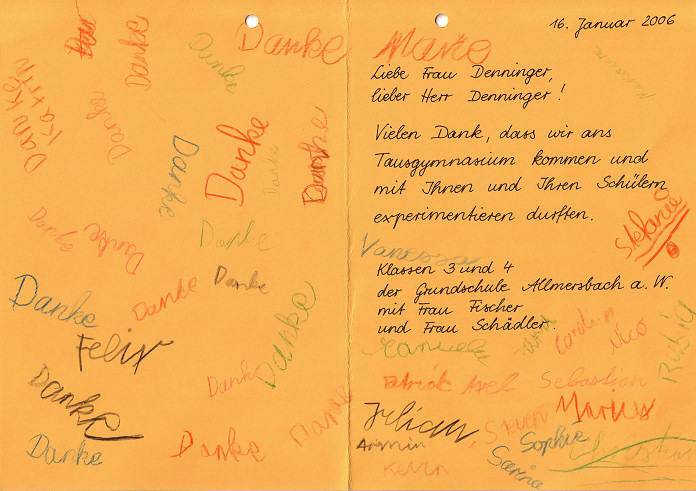 Danke
Danke
Danke
Danke
Katrin
Danke
Danke
Danke
Danke
Danke
Danke
Danke
Danke
Danke
Danke
Danke
Danke
Felix
Danke
Danke
Danke
Danke
Danke
Danke
16. Januar 2006
Marie
Liebe Frau Denninger,
lieber Herr Denninger!
Vielen Dank, dass wir ans
Tausgymnasium kommen und
mit Ihnen und Ihren Schülern
experimentieren durften.
Stefanie
Vanessa
Klassen 3 und 4
der Grundschule Allmersbach a. W.
mit Frau Fischer
und Frau Schädler.
Manuela
Carolin
Nico
Robin
Patrick
Axel
Sebastian
Julian
Steven
Marius
Armin
Sophie
Kevin
Sarina